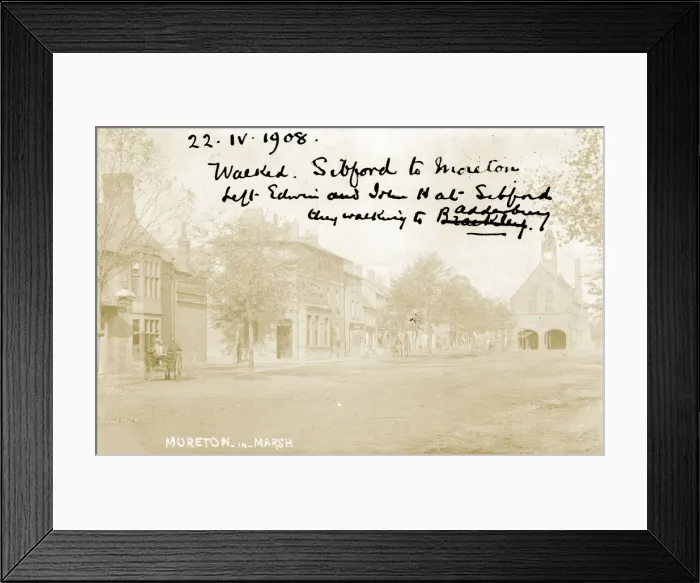 22. IV. 1908.
Walked. Sibford to Moreton
Left Edwin and H at Sibford
they walking to Adderbury
Brackley.
MORETON-IN-MARSH